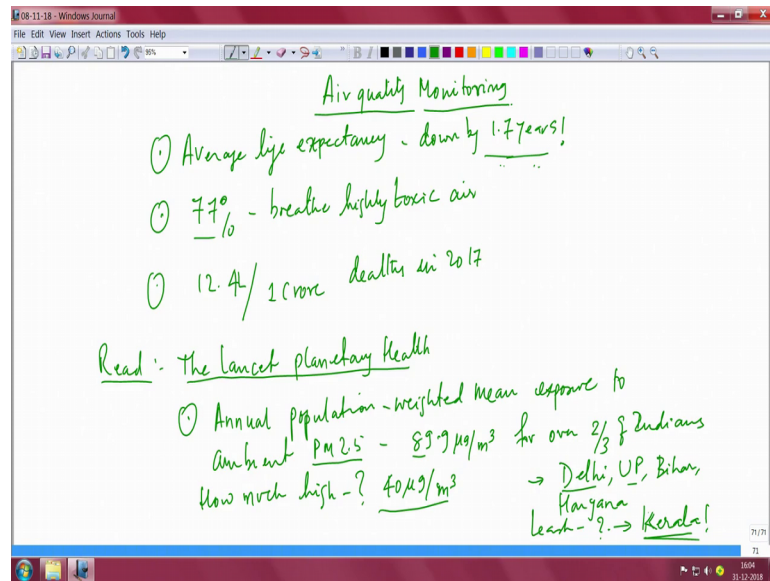 08-11-18 - Windows Journal
File Edit View Insert Actions Tools Help
96%
Air quality Monitoring
Average life expectancy - down by 1.7 years!
77% - breathe highly toxic air
12.4L/1 crore deaths in 2017
Read :- The Lancet planetary Health
Annual population-weighted mean exposure to
ambient PM 2.5 - 89.9 µg/m³ for over 2/3 of Indians
How much high - ? 40µg/m³ → Delhi, UP, Bihar,
Haryana
Least - ? → Kerala!
71/71
71
16:04
31-12-2018